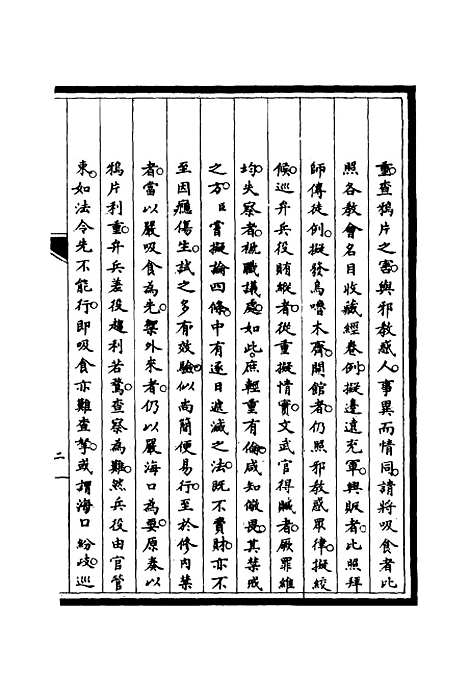 重查鴉片之害與邪教惑人事異而情同請將吸食者比
照各教會名目收藏經卷例擬邊遠充軍興販者比照拜
師傅徒例擬發烏嚕木齊開館者仍照邪教惑眾律擬絞
候巡弁兵役賄縱者從重擬情實文武官得贓者厥罪維
均失察者褫職議處如此庶輕重有倫咸知儆畏其禁戒
之方臣嘗擬論四條中有逐日遞減之法既不費財亦不
至因癮傷生試之多有效驗似尚簡便易行至於修內禁
者當以嚴吸食為先禦外來者仍以嚴海口為要原奏以
鴉片利重弁兵差役趨利若鶩查察為難然兵役由官管
東如法令先不能行即吸食亦難查拏或謂海口紛歧巡
二